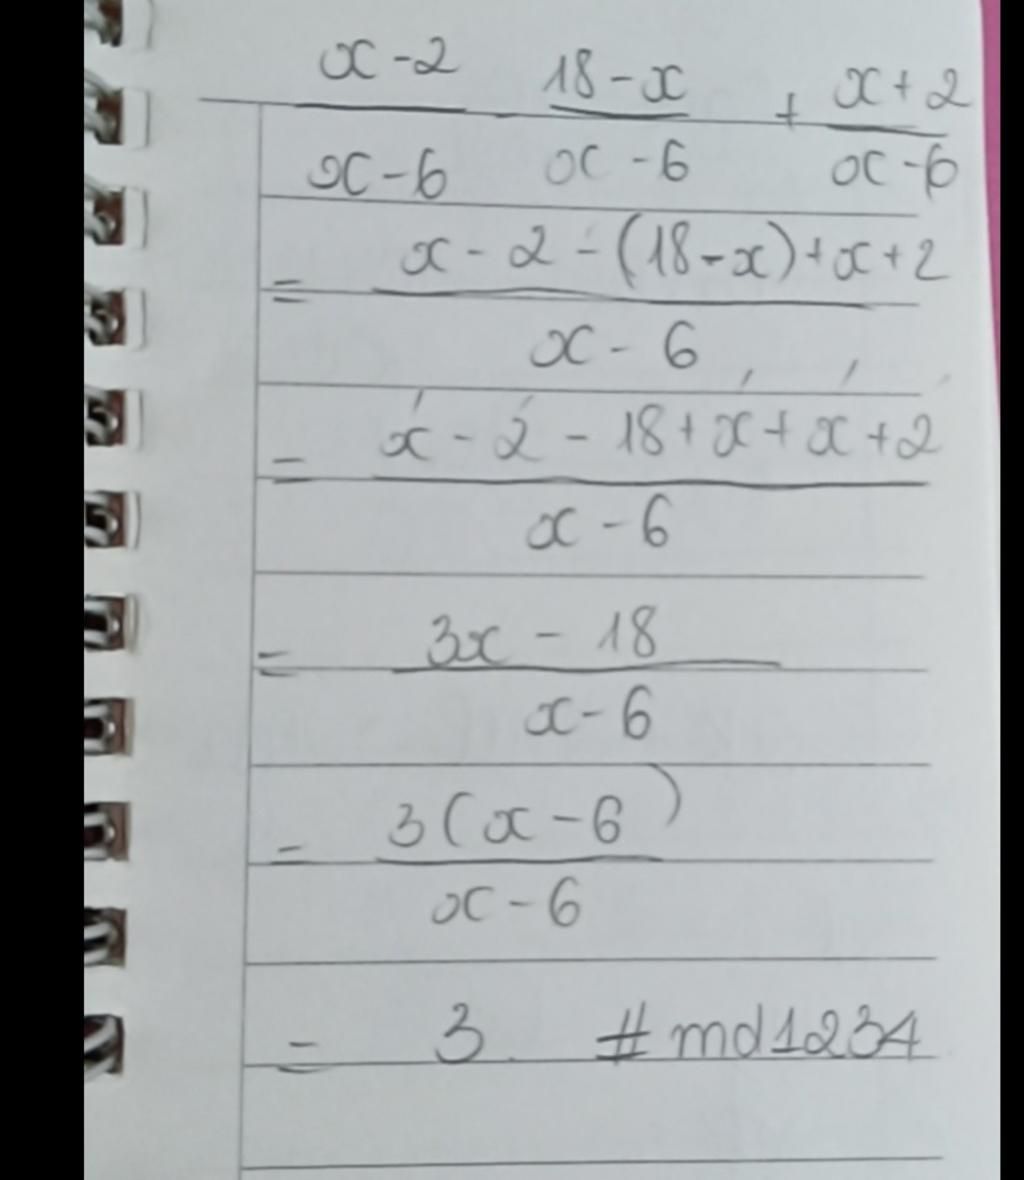 x-2 - 18-x + x+2
x-6 x-6 x-6
= x-2-(18-x)+x+2
x-6
= x-2-18+x+x+2
x-6
= 3x-18
x-6
= 3(x-6)
x-6
= 3. #md1234